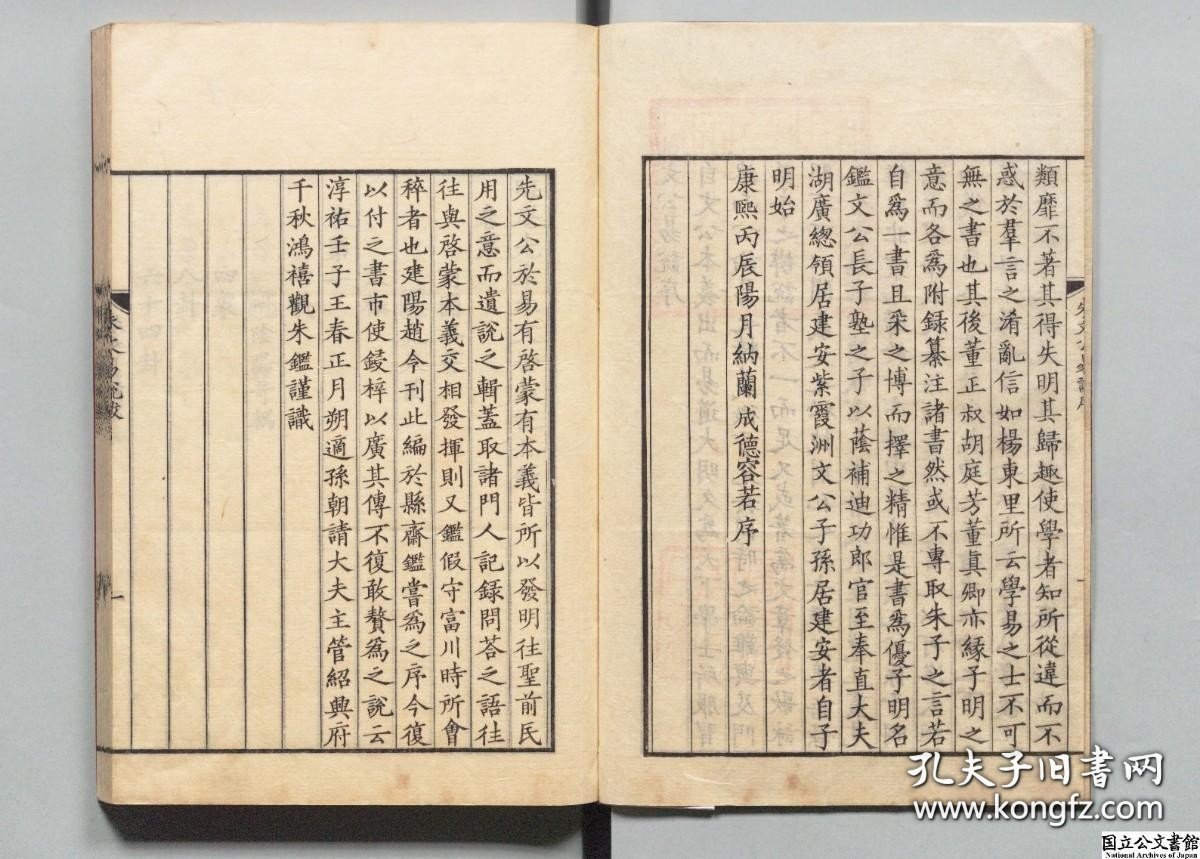 類靡不著其得失明其歸趣使學者知所從違而不
惑於羣言之淆亂信如楊東里所云學易之士不可
無之書也其後董正叔胡庭芳董真卿亦緣子明之
意而各爲附録纂注諸書然或不專取朱子之言若
自爲一書且采之博而擇之精惟是書爲優子明名
鑑文公長子塾之子以蔭補迪功郎官至奉直大夫
湖廣總領居建安紫霞洲文公子孫居建安者自子
明始
康熙丙辰陽月納蘭成德容若序
先文公於易有啓蒙有本義皆所以發明往聖前民
用之意而遺說之輯蓋取諸門人記録問荅之語往
往與啓蒙本義交相發揮則又鑑假守富川時所會
稡者也建陽趙令刊此編於縣齋鑑嘗爲之序今復
以付之書市使鋟梓以廣其傳不復敢贅爲之説云
淳祐壬子王春正月朔適孫朝請大夫主管紹興府
千秋鴻禧觀朱鑑謹識
一
孔夫子旧書网
www.kongfz.com
国立公文書館
National Archives of Japan